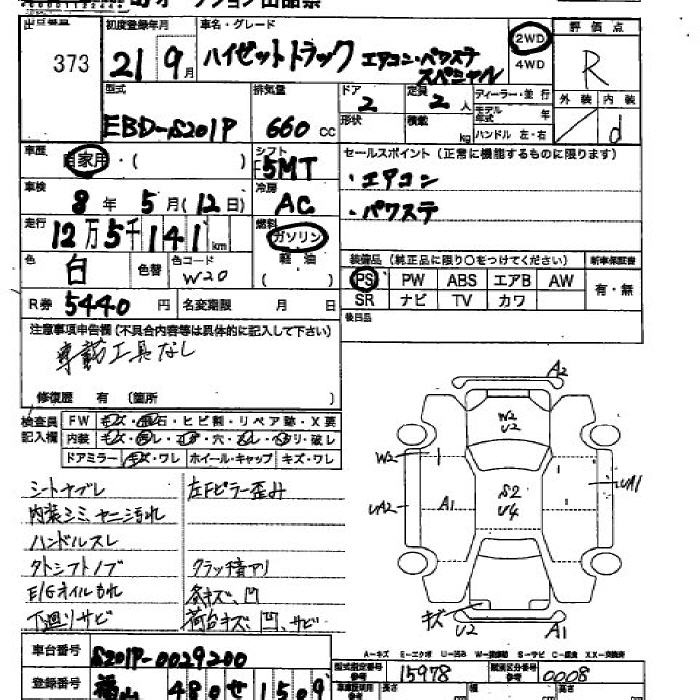 オークション出品票
出品番号 373
初度登録年月 21年 9月
車名・グレード ハイゼットトラック エアコン・パワステ スペシャル
2WD
4WD
評価点 R
外装 内装 d
型式 EBD-S201P
排気量 660 CC
ドア 2 形状
定員 2人 積載 kg
ディーラー・並行
モデル年式 年
ハンドル 左・右
車歴 自家用・( )
シフト F5MT
セールスポイント(正常に機能するものに限ります)
・エアコン
・パワステ
車検 8年 5月(12日)
冷房 AC
走行 12万5千141km
燃料 ガソリン
軽油
( )
色 白 色替 色コード W20
R券 5440円 名変期限 月 日
装備品(純正品に限り○をつけてください) 新車保証書
PS PW ABS エアB AW 有・無
SR ナビ TV カワ
後日品
注意事項申告欄(不具合内容等は具体的に記入して下さい)
専載工具なし
修復歴 有 (箇所 )
検査員記入欄
FW キズ・飛石・ヒビ割・リペア跡・X要
内装 ・穴・ ・破レ
ドアミラー キズ・ワレ ホイール・キャップ キズ・ワレ
シートナブレ
内装シミ、ヤニ汚れ
ハンドルスレ
タトシフトノブ
E/Gオイルもれ
下廻りサビ
左Fピラー歪み
クラッチ滑アリ
各キズ、凹
荷台キズ、凹、サビ
A2
W2
U2
W2
UA2
A1
S2
U4
UA1
キズ
U2
A1
A-キズ E-エクボ U-凹み W-補修跡 S-サビ C-腐食 XX-交換済
車台番号 S201P-0029200
型式指定番号 参考 15978
類別区分番号 参考 0008
登録番号 福山 480 せ 1509
長さ 幅 高さ